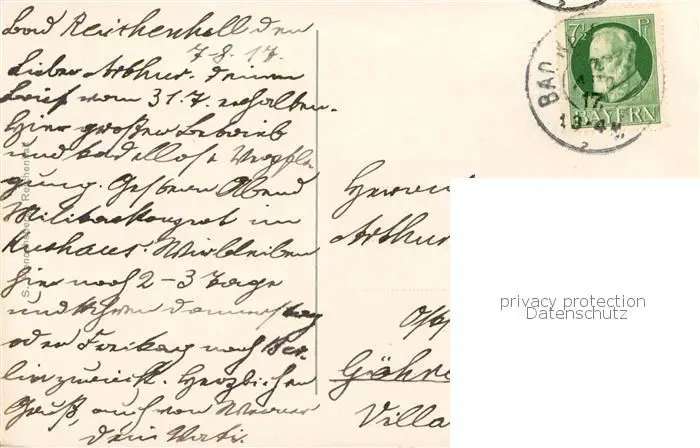 Bad Reichenhall den
7-8.17.
Lieber Arthur. Deinen
Brief vom 31.7. erhalten.
Hier großer Betrieb
und tadellose Verpfle
gung. Gestern Abend
Militärkonzert im
Kurhaus. Wir bleiben
hier noch 2-3 Tage
und kehren Donnerstag
oder Freitag nach Ber-
lin zurück. Herzlichen
Gruß, auch von Werner
Dein Vati.
Herrn
Arthur
Ost
Göhre
Villa
7½ Pf
BAYERN
BAD RE
17
privacy protection
Datenschutz